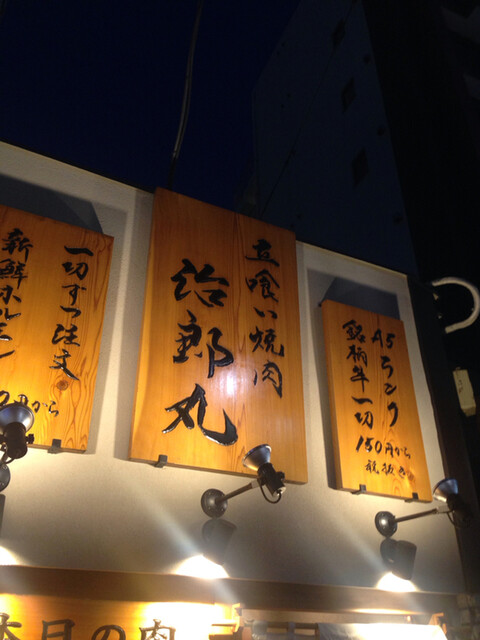 立喰い焼肉
治郎丸
A5ランク
銘柄牛一切
150円から
税抜き
一切ずつ注文
新鮮ホルモン
0円から
本日の肉